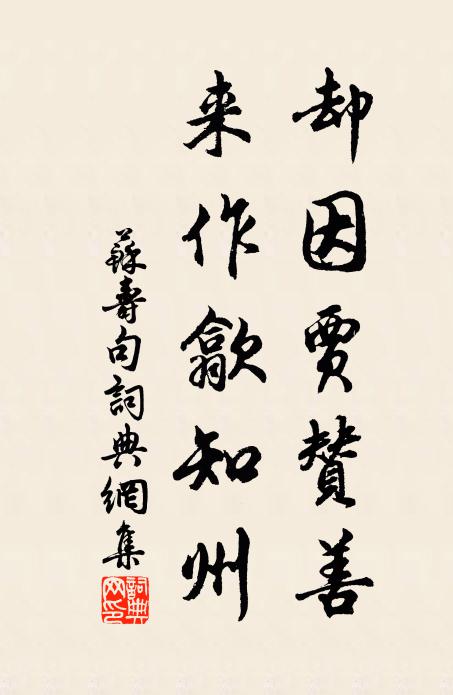 却因賈贊善
来作歙知州
蘇壽句詞典網集
詞典网印